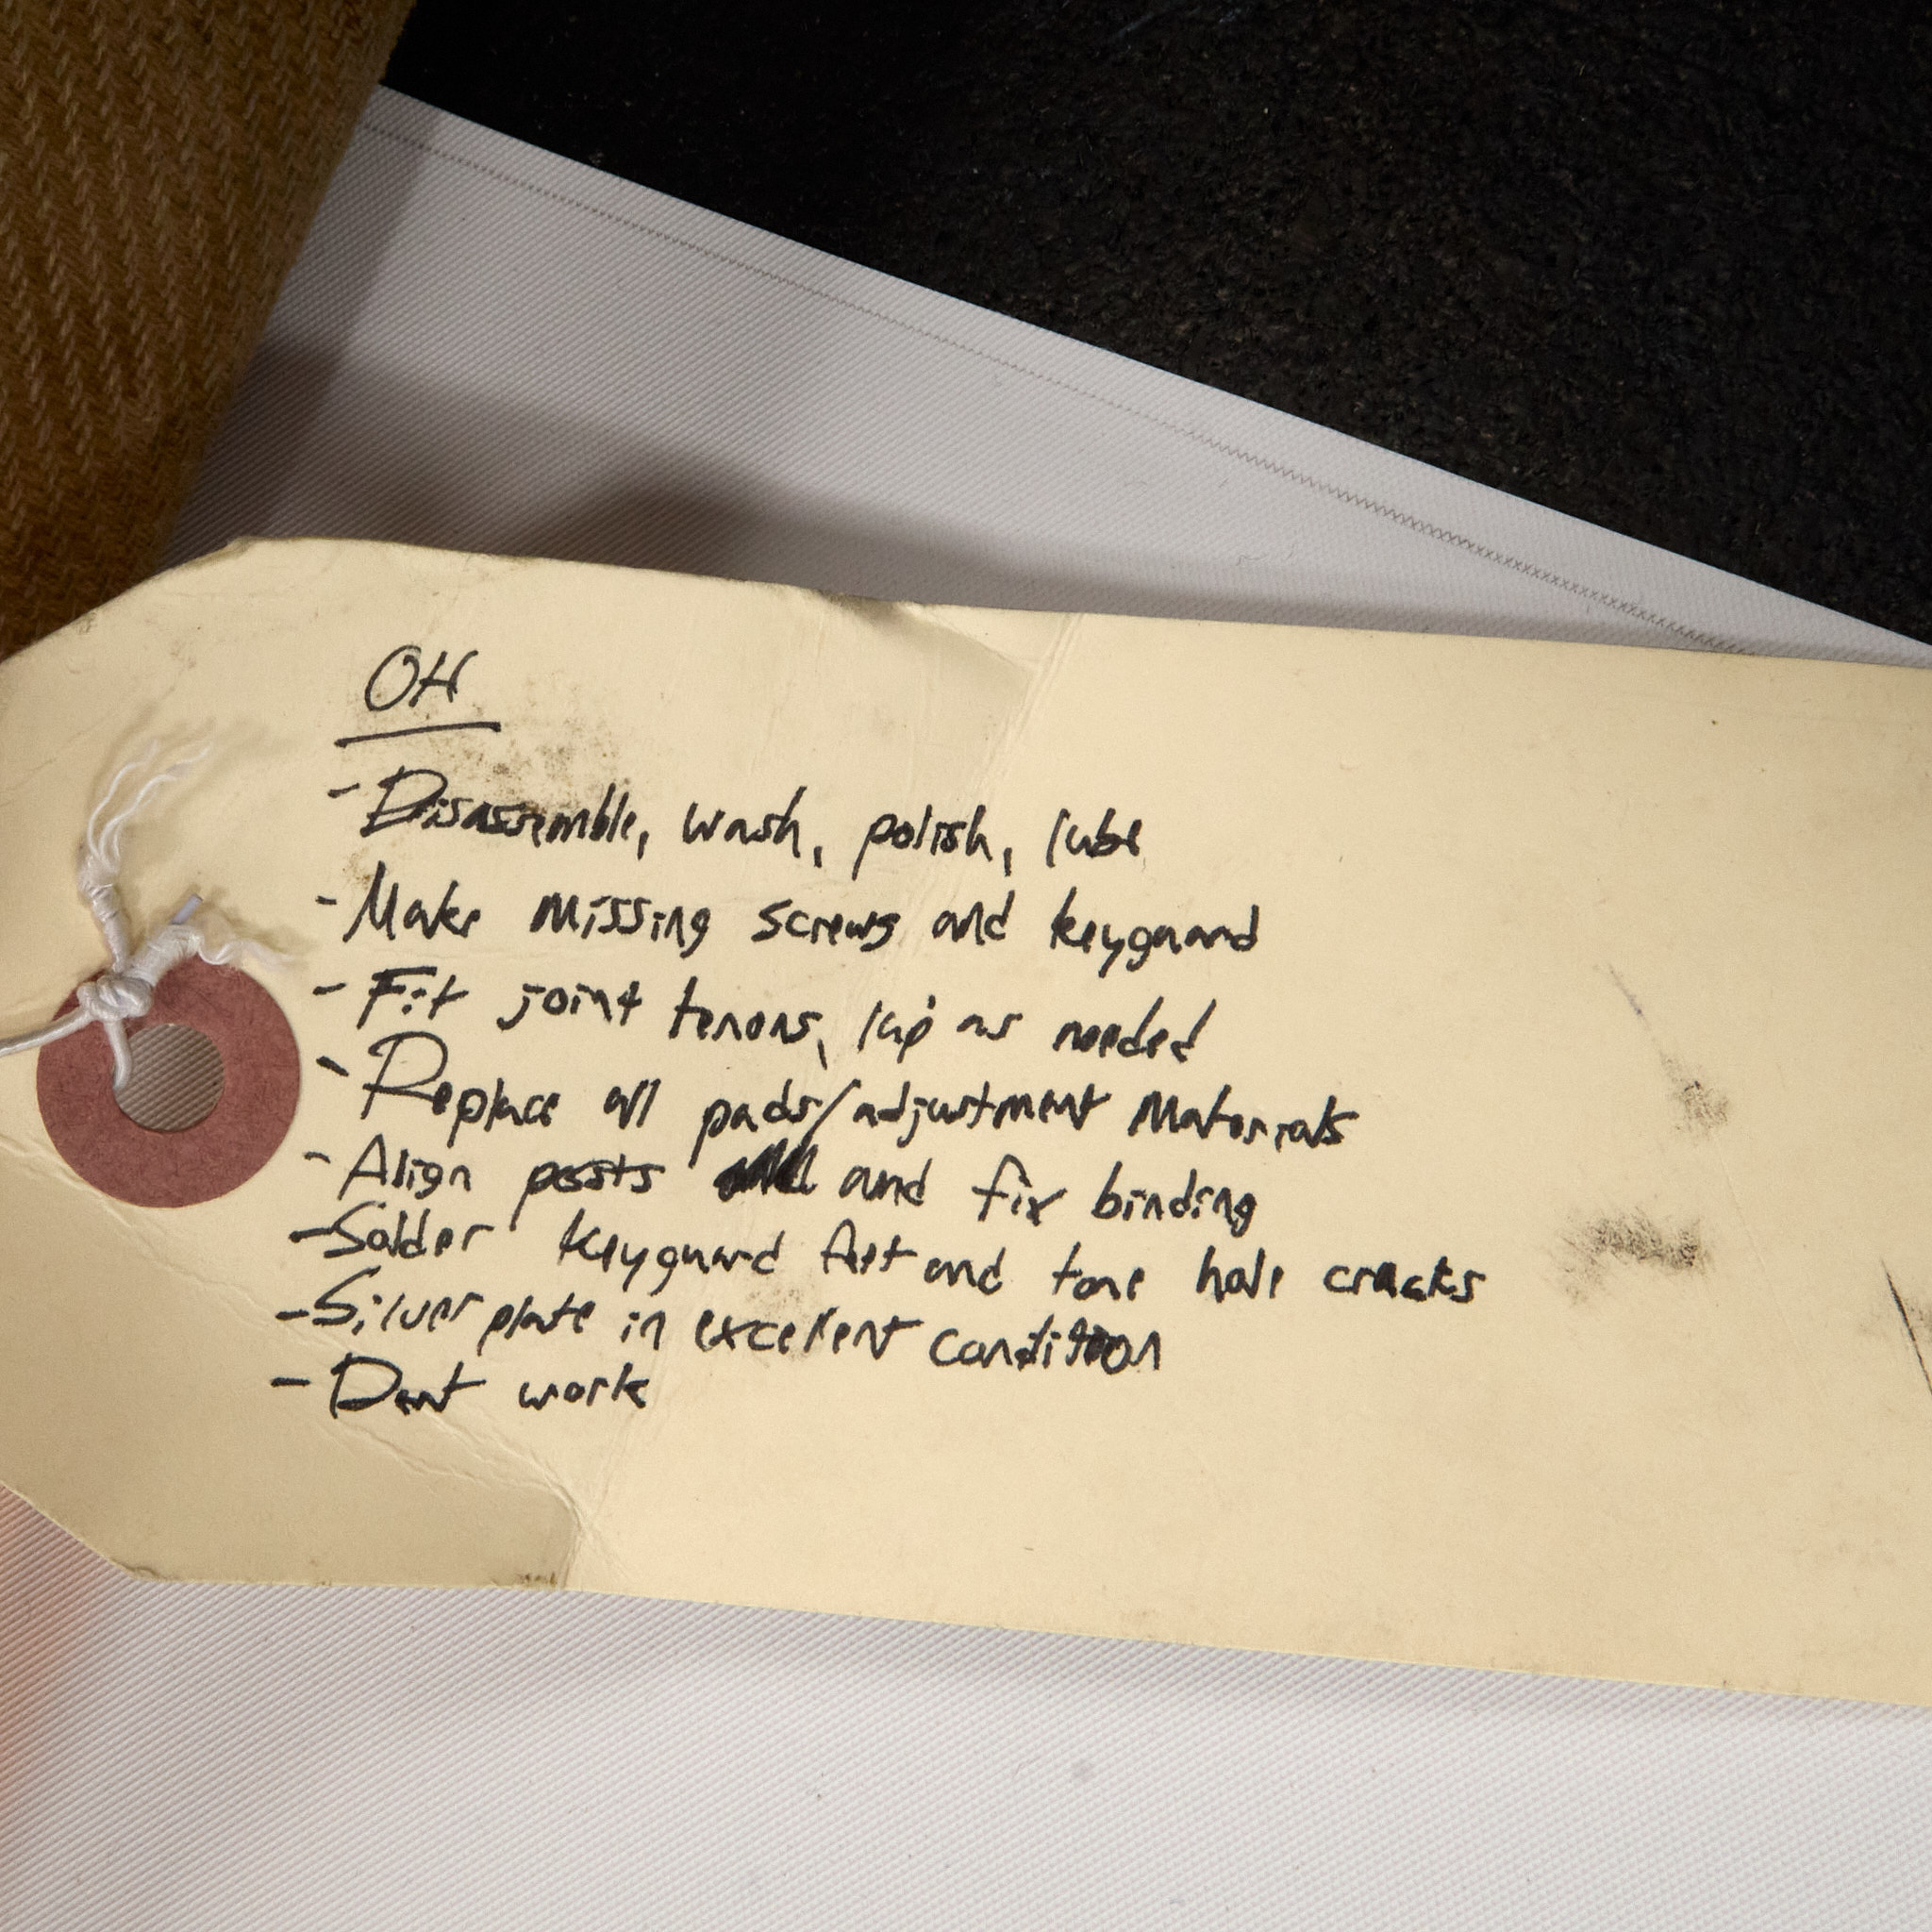 OH
- Disassemble, wash, polish, lube
- Make missing screws and keyguard
- Fit joint tenons, lap as needed
- Replace all pads/adjustment Materials
- Align posts and fix binding
- Solder keyguard feet and tone hole cracks
- Silver plate in excellent condition
- Dent work